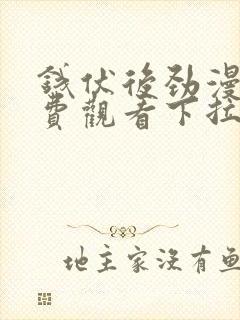 钱伏後劲漫
费觀看下拉
地主家没有鱼